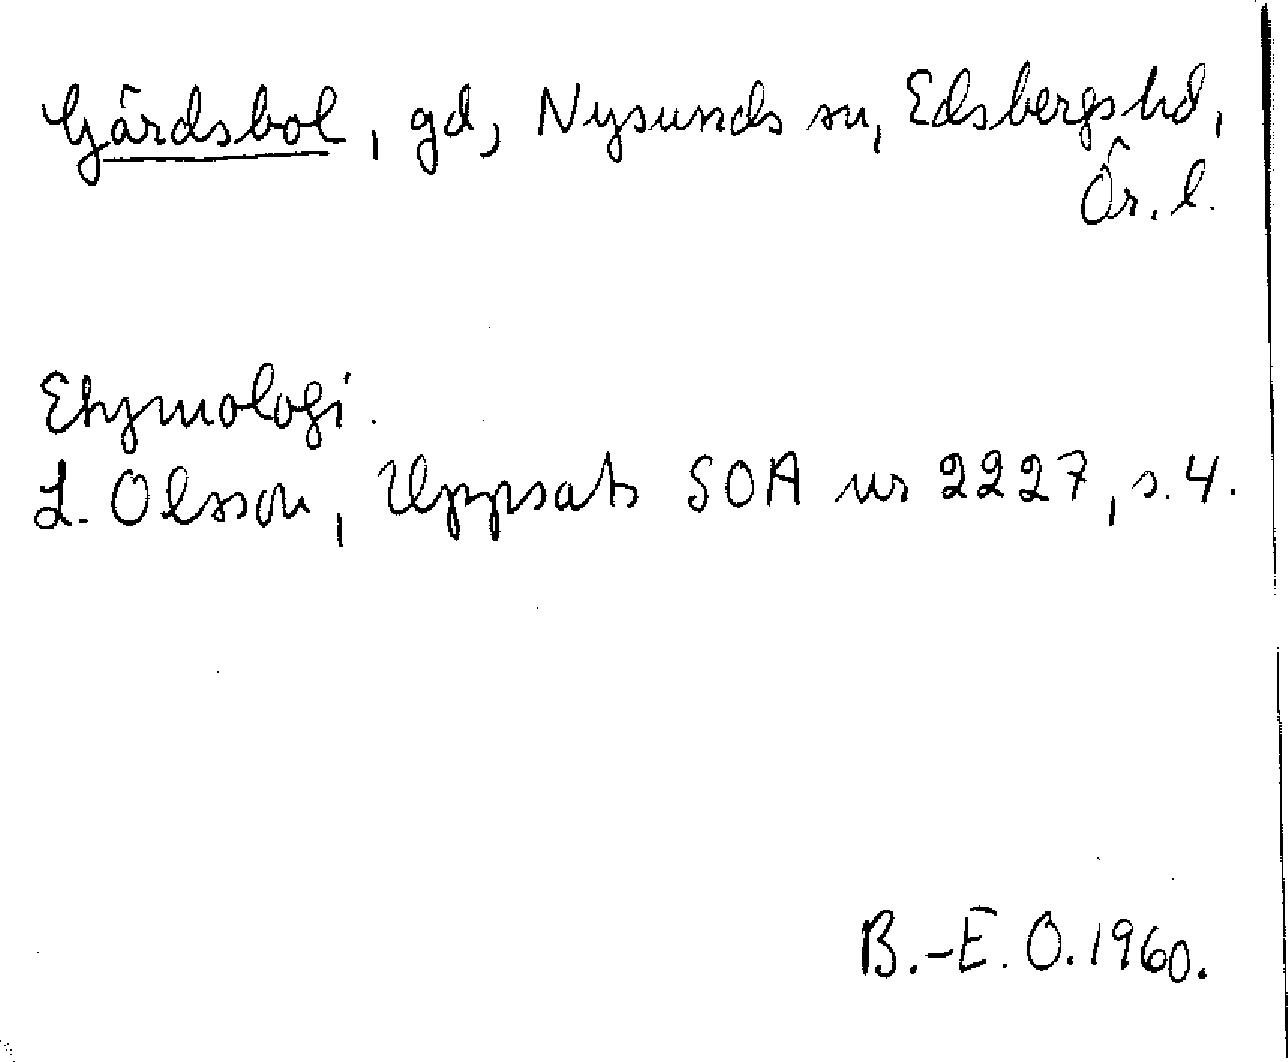 Gärdsbol, gd, Nysunds sn, Edsbergs hd,
Ör. l.
Etymologi.
L. Olsson, Uppsats SOA nr 2227, s. 4.
B.-E. O. 1960.